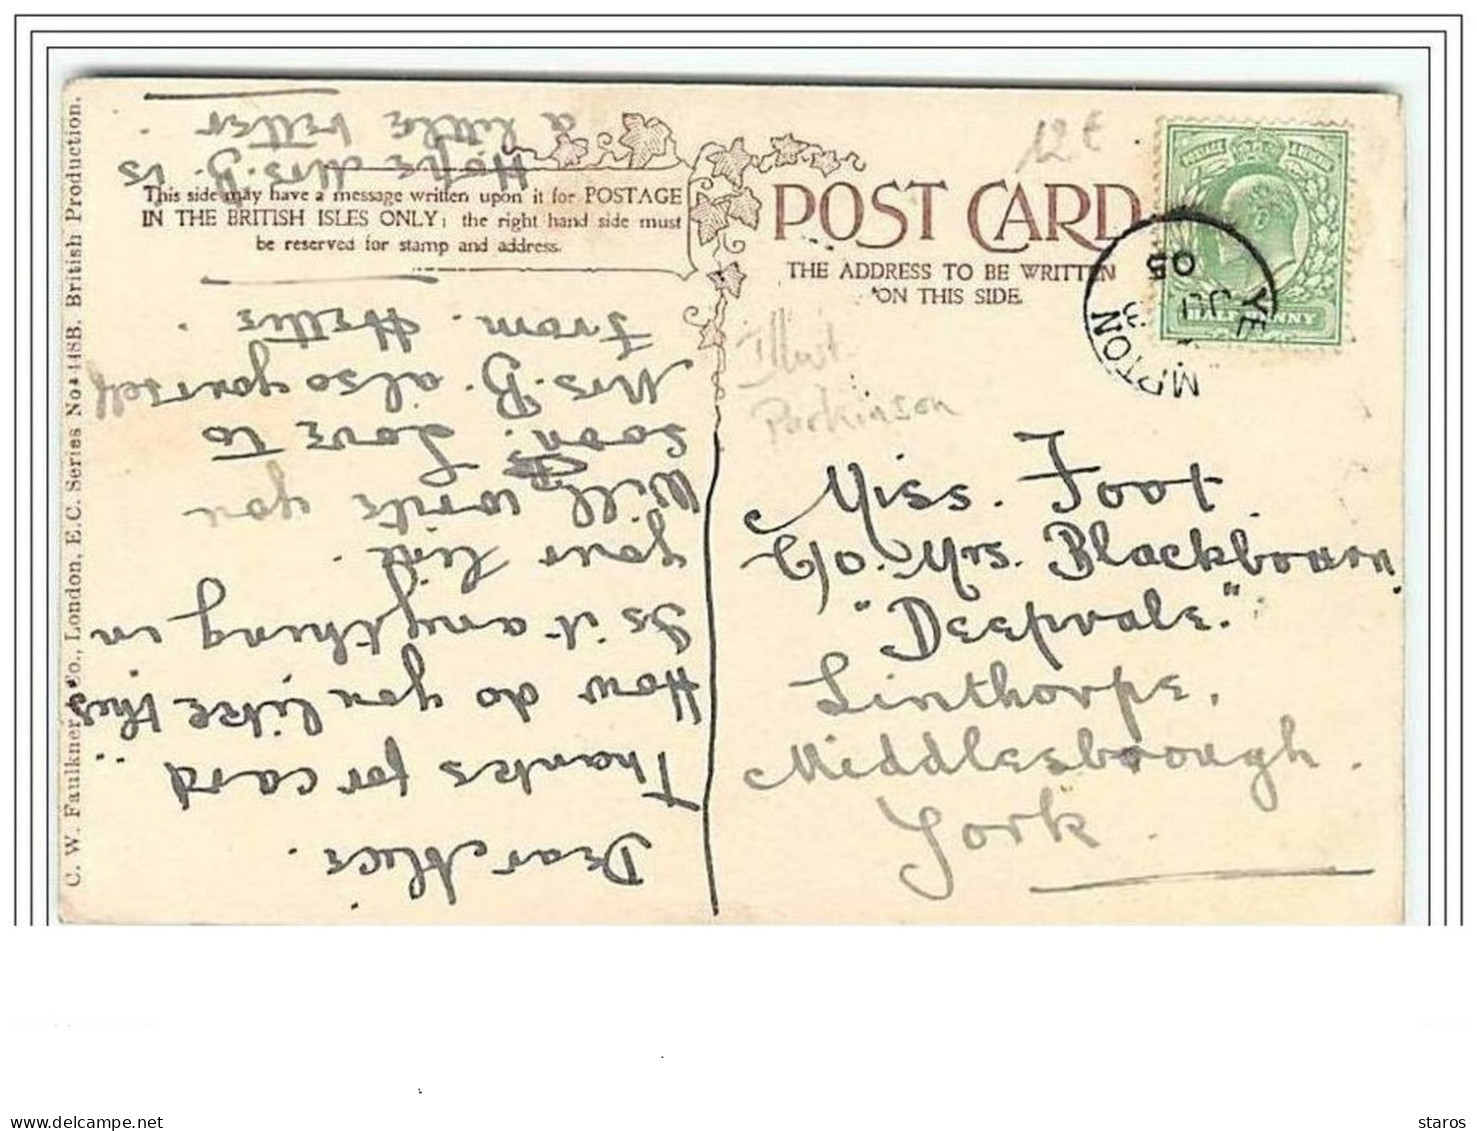 C. W. Faulkner & Co., London, E.C. Series No. 448B. British Production.
This side may have a message written upon it for POSTAGE
IN THE BRITISH ISLES ONLY; the right hand side must
be reserved for stamp and address.
POST CARD
THE ADDRESS TO BE WRITTEN
ON THIS SIDE.
12€
HALFPENNY
JU
05
MPTON
Illust.
Parkinson
Miss. Foot
C/o. Mrs. Blackbourn,
"Deepvale."
Linthorpe,
Middlesborough.
York.
Dear Alice.
Thanks for card
How do you like this
Is it anything in
your line.
Will write you
soon. Love to
Mrs. B. also yourself
From. Hettie.
Hope Mrs. B. is
a little better.
staros